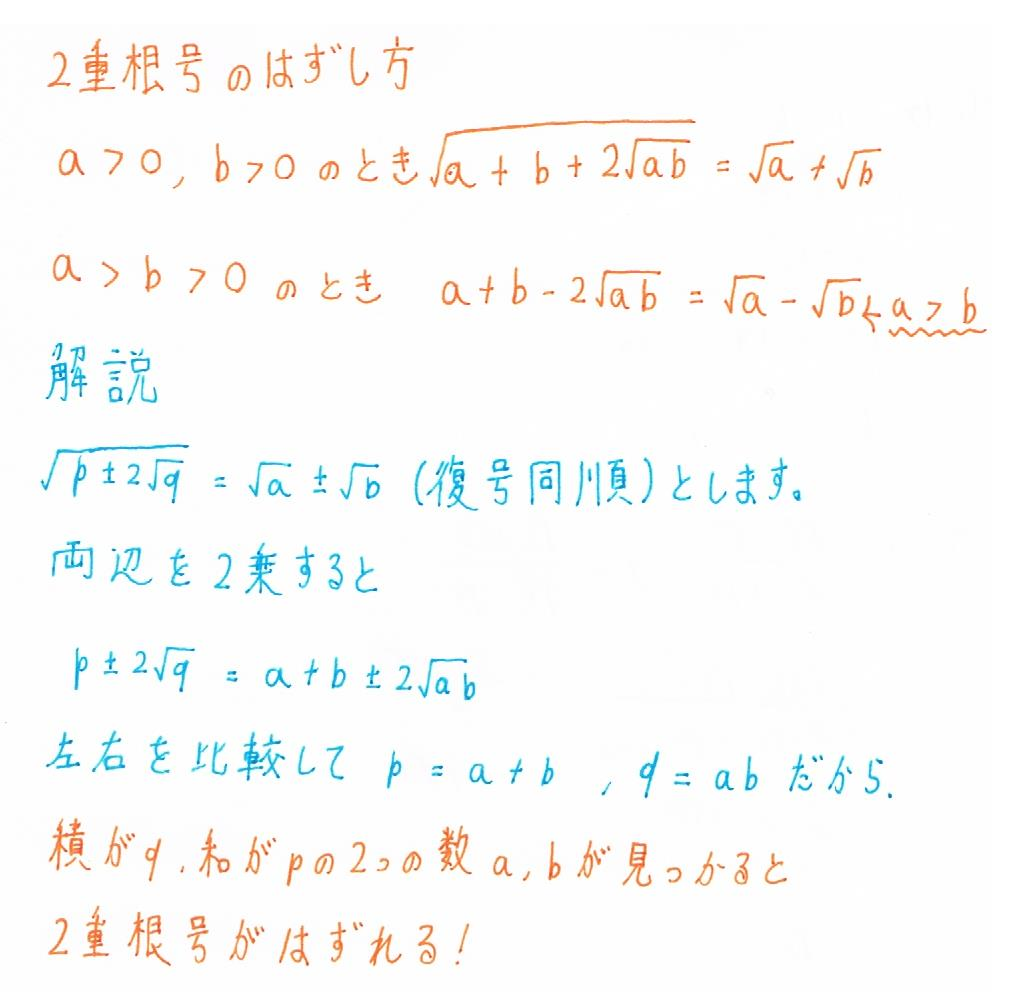 2重根号のはずし方
a>0, b>0 のとき √(a + b + 2√ab) = √a + √b
a > b > 0 のとき a+b-2√ab = √a - √b ← a > b
解説
√(p±2√q) = √a ± √b (復号同順)とします。
両辺を2乗すると
p±2√q = a+b±2√ab
左右を比較して p = a+b , q = ab だから.
積がq, 和がpの2つの数a, bが見つかると
2重根号がはずれる!